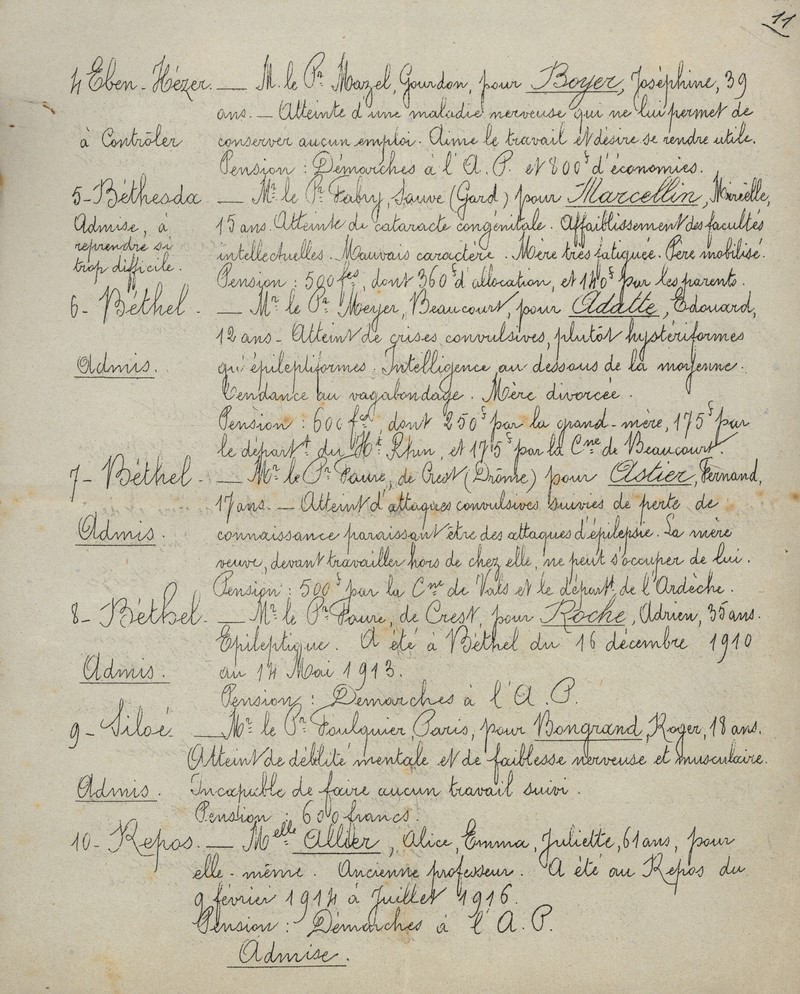 11
4 Eben-Hézer. — M. le Pr Mazel, Gourdon, pour Boyer, Joséphine, 39
ans. — Atteinte d'une maladie nerveuse qui ne lui permet de
à Contrôler conserver aucun emploi. Aime le travail et désire se rendre utile.
Pension : Démarches à l'A.P. et 800f d'économies.
5-Béthesda — Mr le Pr Fabry, Sauve (Gard) pour Marcellin, Mireille,
Admise, à 15 ans. Atteinte de cataracte congénitale. Affaiblissement des facultés
reprendre si intellectuelles. Mauvais caractère. Mère très fatiguée. Père mobilisé.
trop difficile. Pension : 500 fcs, dont 360f d'allocation, et 140f par les parents.
6- Béthel. — Mr le Pr Meyer, Beaucourt, pour Adatte, Edouard,
12 ans - Atteint de crises convulsives, plutôt hystériformes
Admis. qu'épileptiformes. Intelligence au dessous de la moyenne.
Tendance au vagabondage. Mère divorcée.
Pension : 600 fcs, dont 250f par la grand-mère, 175f par
le départt du Ht Rhin, et 175f par la Cne de Beaucourt.
7- Béthel. — Mr le Pr Faure, de Crest (Drôme) pour Astier, Fernand,
17 ans. — Atteint d'attaques convulsives suivies de perte de
Admis. connaissance paraissant être des attaques d'épilepsie. La mère
veuve, devant travailler hors de chez elle, ne peut s'occuper de lui.
Pension : 500f par la Cne de Vals et le départt de l'Ardèche.
8- Béthel. — Mr le Pr Faure, de Crest, pour Roche, Adrien, 35 ans.
Epileptique. A été à Béthel du 16 décembre 1910
Admis. au 14 Mai 1913.
Pension : Démarches à l'A.P.
9- Siloé — Mr le Pr Foulquier, Paris, pour Bongrand, Roger, 18 ans.
Atteint de débilité mentale et de faiblesse nerveuse et musculaire.
Admis. Incapable de faire aucun travail suivi.
Pension : 600 francs.
10- Repos. — Melle Allier, Alice, Emma, Juliette, 61 ans, pour
elle-même. Ancienne professeur. A été au Repos du
9 février 1914 à Juillet 1916.
Pension : Démarches à l'A.P.
Admise.